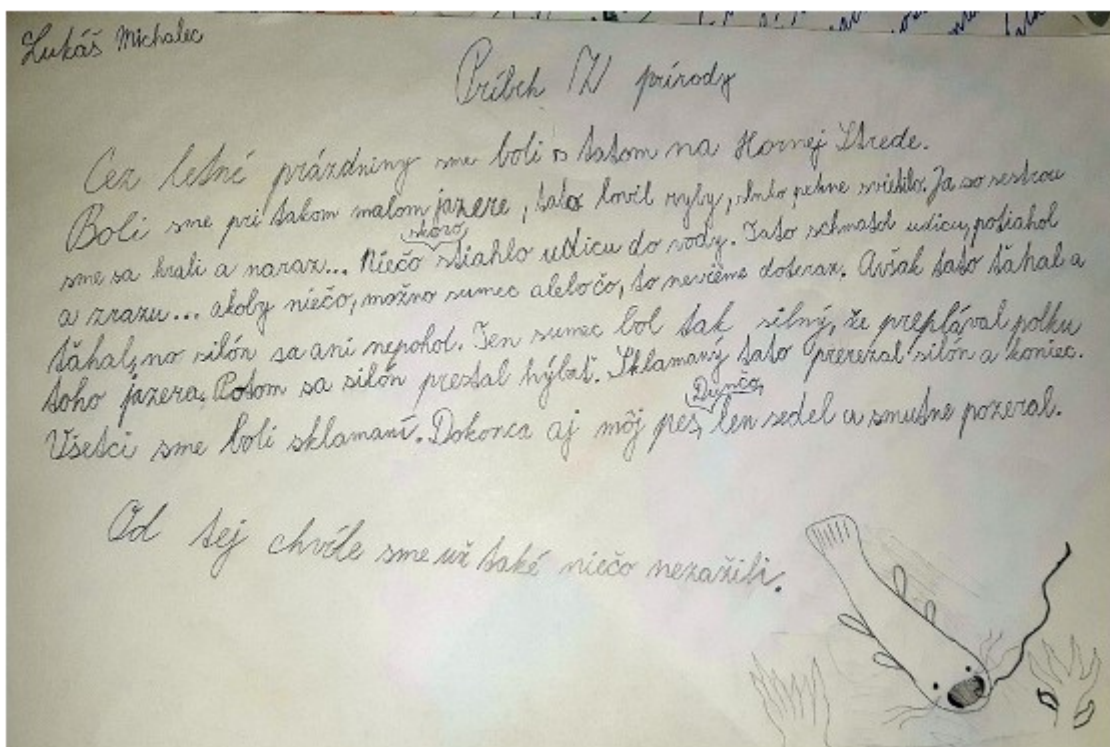 Lukáš Michalec
Príbeh Z prírody
Cez letné prázdniny sme boli s tatom na Hornej Strede.
Boli sme pri takom malom jazere, tato lovil ryby, slnko pekne svietilo. Ja so sestrou
skoro
sme sa hrali a naraz... Niečo stiahlo udicu do vody. Tato schmatol udicu, potiahol
a zrazu... akoby niečo, možno sumec alebočo, to nevieme doteraz. Avšak tato ťahal a
ťahal, no silón sa ani nepohol. Ten sumec bol tak silný, že preplával polku
toho jazera. Potom sa silón prestal hýbať. Sklamaný tato prerezal silón a koniec.
Dunčo,
Všetci sme boli sklamaní. Dokonca aj môj pes, len sedel a smutne pozeral.
Od tej chvíle sme už také niečo nezažili.